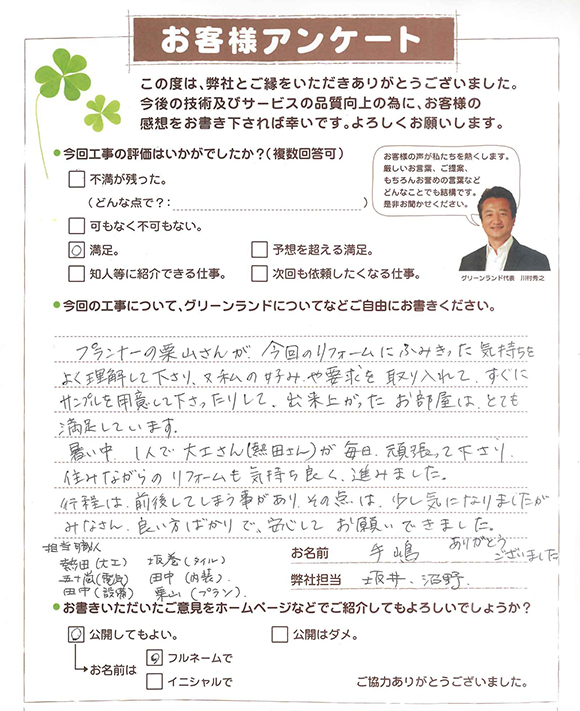 お客様アンケート
この度は、弊社とご縁をいただきありがとうございました。
今後の技術及びサービスの品質向上の為に、お客様の
感想をお書き下されば幸いです。よろしくお願いします。
今回工事の評価はいかがでしたか？（複数回答可）
不満が残った。
（どんな点で？：　　　）
可もなく不可もない。
満足。
予想を超える満足。
知人等に紹介できる仕事。
次回も依頼したくなる仕事。
お客様の声が私たちを熱くします。
厳しいお言葉、ご提案、
もちろんお誉めの言葉など
どんなことでも結構です。
是非お聞かせください。
グリーンランド代表　川村秀之
今回の工事について、グリーンランドについてなどご自由にお書きください。
プランナーの栗山さんが、今回のリフォームにふみきった気持ちを
よく理解して下さり、又私の好みや要求を取り入れて、すぐに
サンプルを用意して下さったりして、出来上がったお部屋は、とても
満足しています。
暑い中、1人で大工さん(熱田さん)が毎日、頑張って下さり、
住みながらのリフォームも気持ち良く、進みました。
行程は、前後してしまう事があり、その点は、少し気になりましたが
みなさん、良い方ばかりで、安心してお願いできました。
ありがとう
ございました
担当職人
熱田(大工)　坂巻(タイル)
五十嵐(電気)　田中(内装)
田中(設備)　栗山(プラン)
お名前　手嶋
弊社担当　坂井、沼野
お書きいただいたご意見をホームページなどでご紹介してもよろしいでしょうか？
公開してもよい。
公開はダメ。
お名前は
フルネームで
イニシャルで
ご協力ありがとうございました。